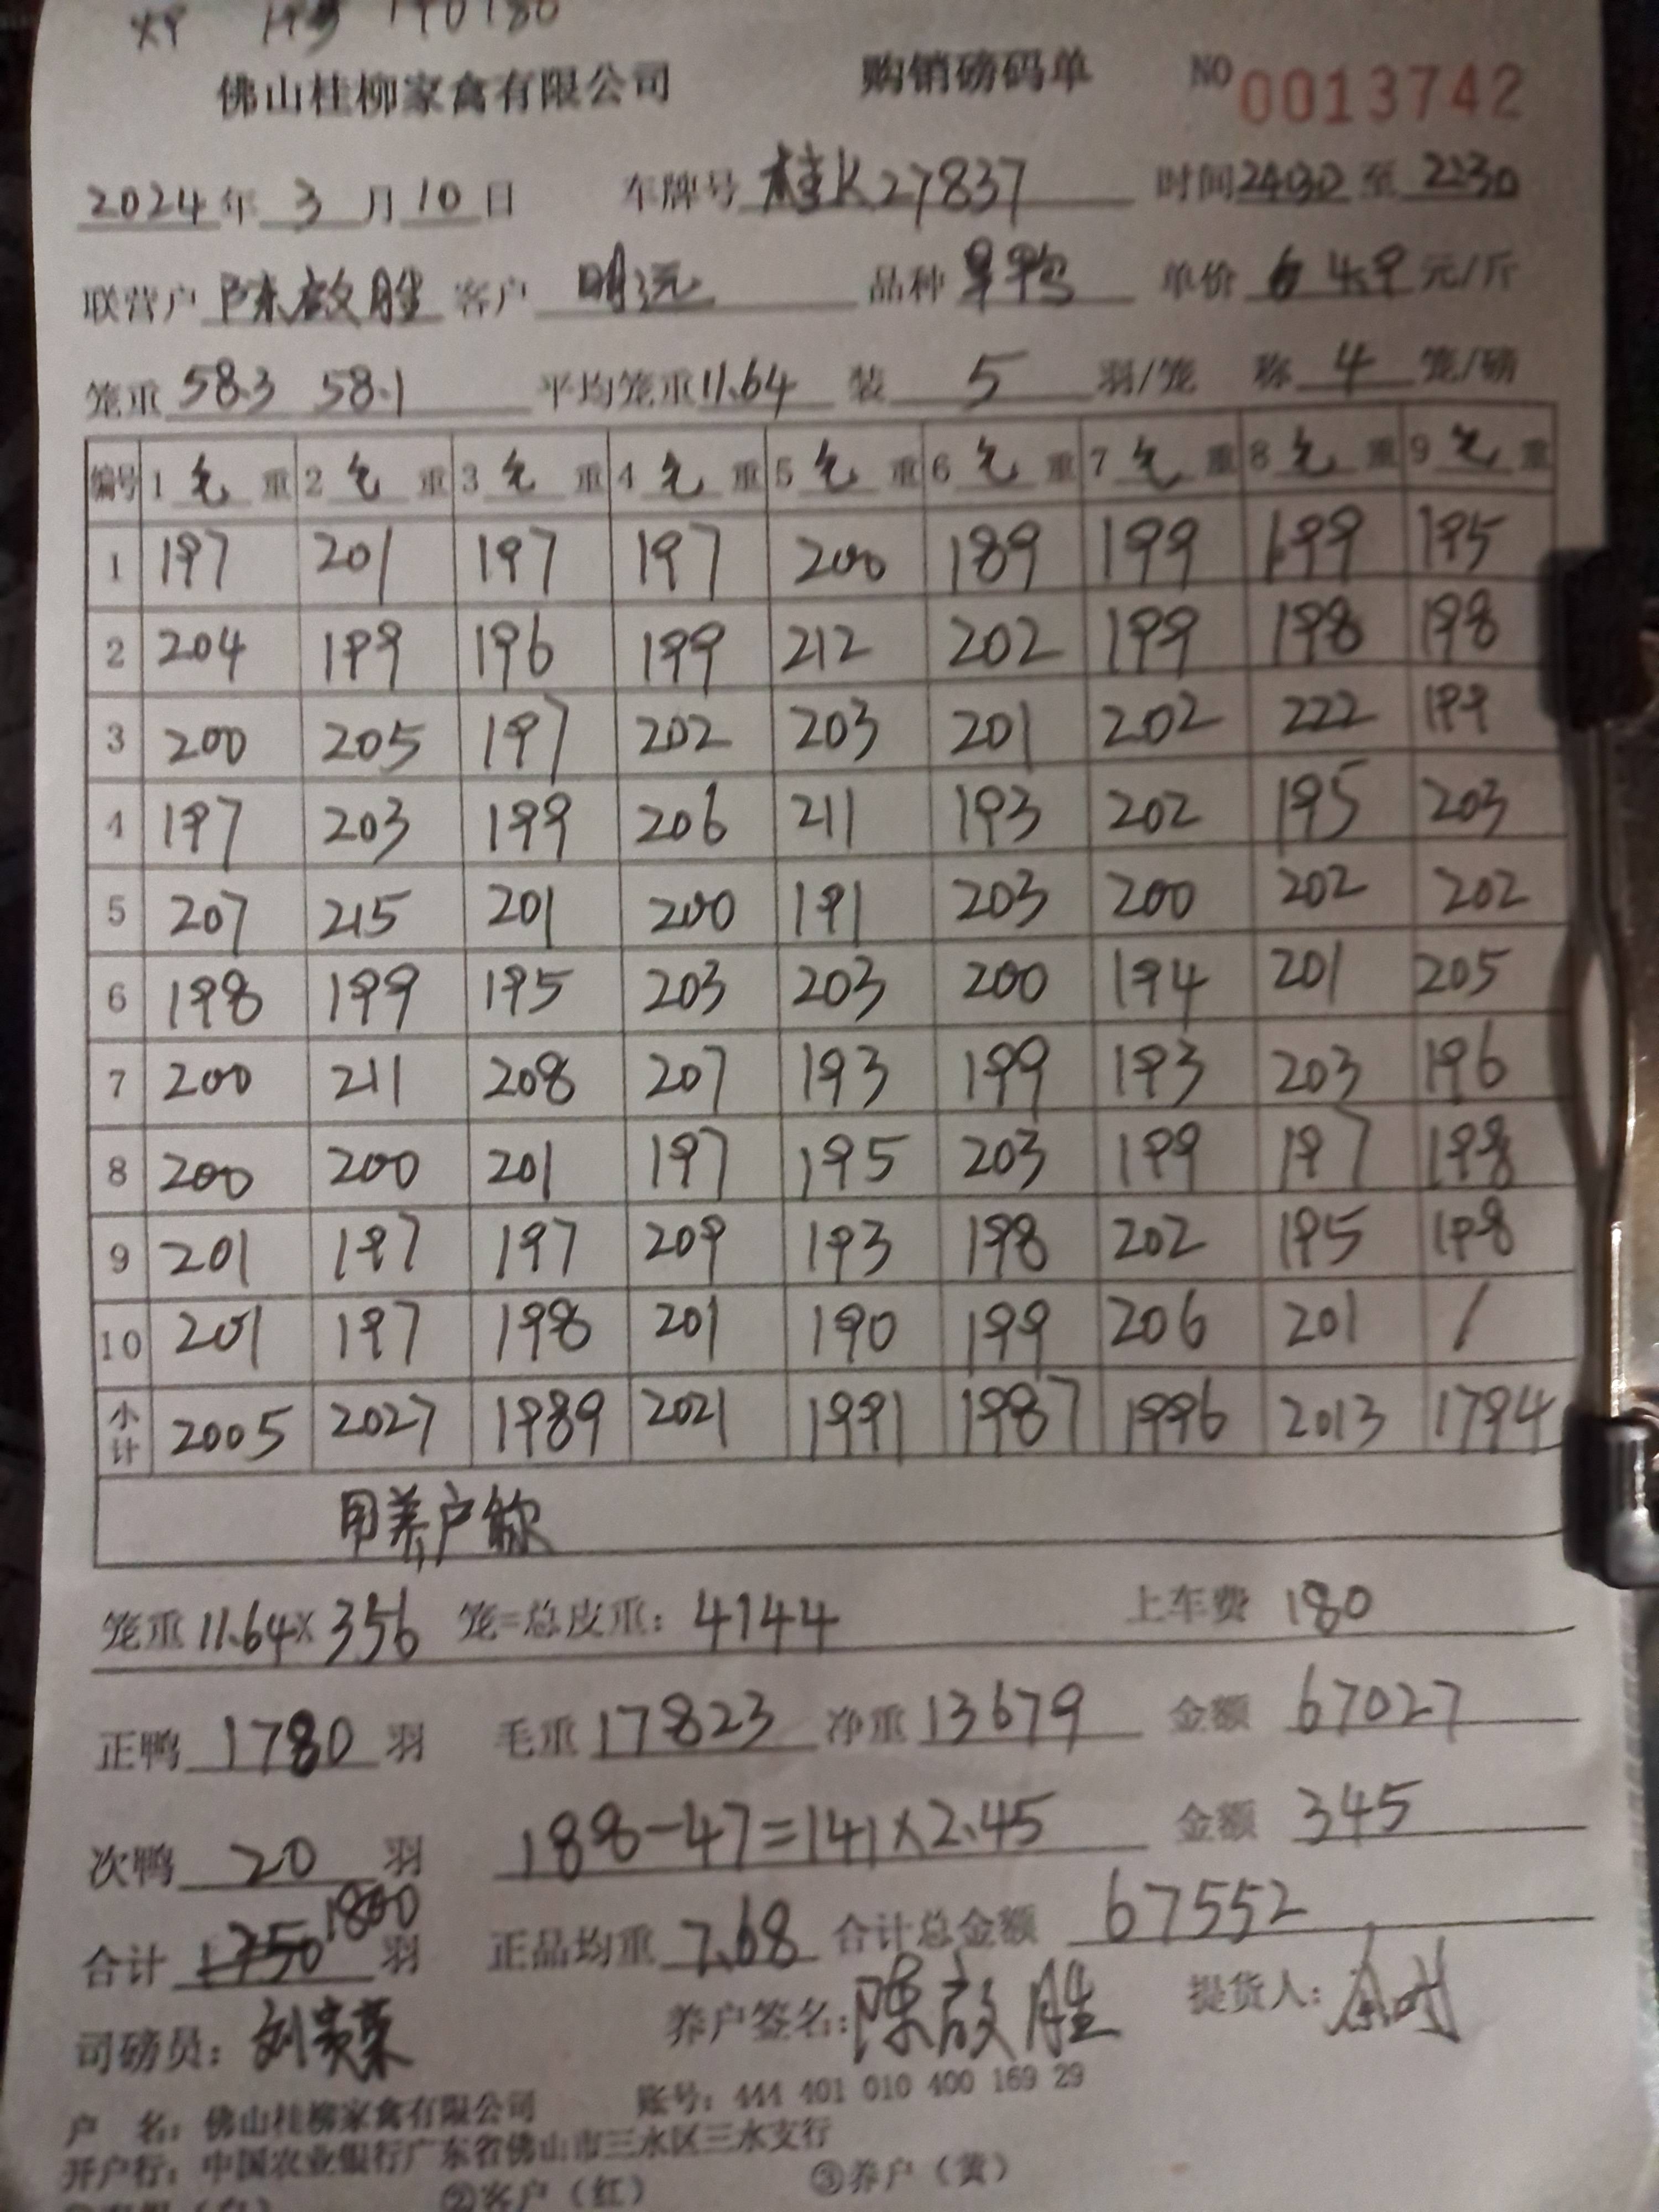 佛山桂柳家禽有限公司 购销磅码单 NO 0013742
2024年 3 月 10 日 车牌号 桂K27837 时间 至 2230
联营户 陈啟胜 客户 明远 品种 单价 4.9 元/斤
笼重 58.3 58.1 平均笼重 11.64 装 5 羽/笼 称 4 笼/磅
编号 1 毛 重 2 毛 重 3 毛 重 4 毛 重 5 毛 重 6 毛 重 7 毛 重 8 毛 重 9 毛 重
1 197 201 197 197 200 189 199 199 195
2 204 199 196 199 212 202 199 198 198
3 200 205 197 202 203 201 202 222 199
4 197 203 199 206 211 193 202 195 203
5 207 215 201 200 191 203 200 202 202
6 198 199 195 203 203 200 194 201 205
7 200 211 208 207 193 199 193 203 196
8 200 200 201 197 195 203 199 197 198
9 201 197 197 209 193 198 202 195 198
10 201 197 198 201 190 199 206 201 /
小计 2005 2027 1989 2021 1991 1987 1996 2013 1794
用养户
笼重 11.64× 356 笼=总皮重: 4144 上车费 180
正鸭 1780 羽 毛重 17823 净重 13679 金额 67027
次鸭 20 羽 188-47=141×2.45 金额 345
合计 1750 1800 羽 正品均重 7.68 合计总金额 67552
司磅员: 养户签名: 陈啟胜 提货人:
户 名: 佛山桂柳家禽有限公司 账号: 444 401 010 400 169 29
开户行: 中国农业银行广东省佛山市三水区三水支行
②客户（红） ③养户（黄）